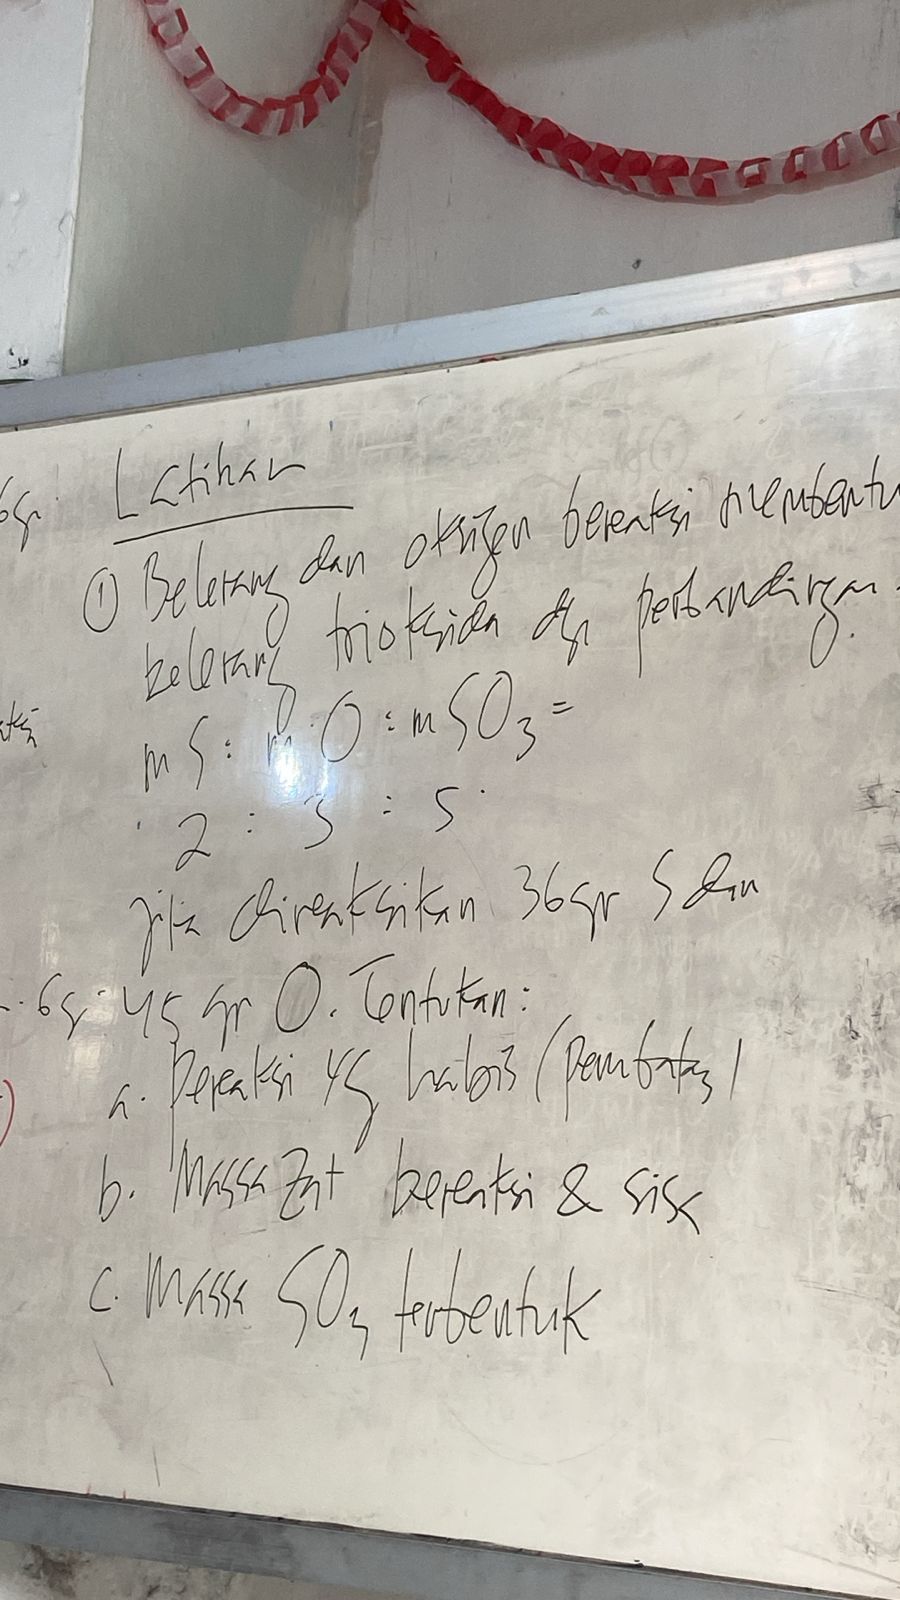 6gr. Latihan
① Belerang dan oksigen bereaksi membentu
belerang trioksida dgn perbandingan
m S : m O : m SO₃ =
2 : 3 : 5.
jika direaksikan 36 gr S dan
6gr. 45 gr O. Tentukan :
a. Pereaksi yg habis (pembatas)
b. Massa Zat bereaksi & sisa
c. Massa SO₃ terbentuk